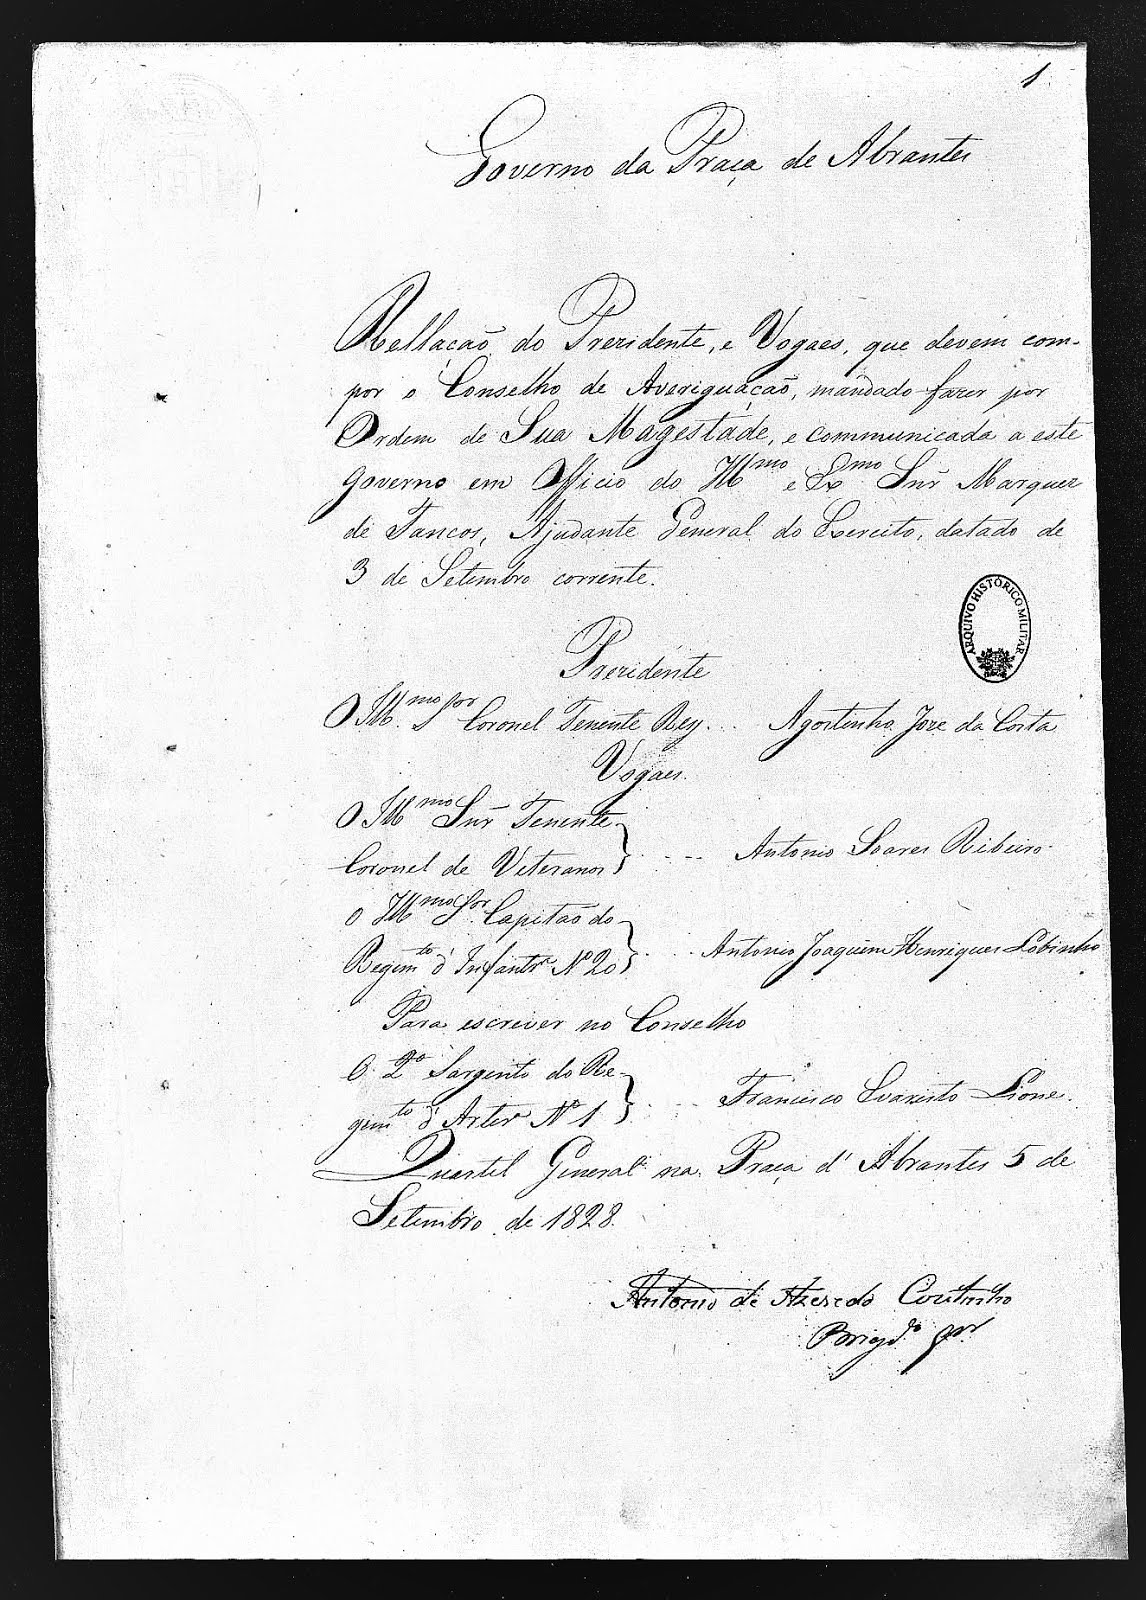 1
Governo da Praça de Abrantes
Rellação do Prezidente, e Vogaes, que devem com-
por o Conselho de Averiguação, mandado fazer por
Ordem de Sua Magestade, e communicada a este
Governo em Officio do Illmo e Exmo Snr Marquez
de Tancos, Ajudante General do Exercito, datado de
3 de Setembro corrente.
ARQUIVO HISTÓRICO MILITAR
Prezidente
O Illmo Sor Coronel Tenente Rey... Agostinho Joze da Costa
Vogaes.
O Illmo Snr Tenente
Coronel de Veteranos } ... Antonio Soares Ribeiro
O Illmo Sor Capitão do
Regimto d'Infantra No 20 } ... Antonio Joaquim Henriques Lobinho
Para escrever no Conselho
O 2o Sargento do Re-
gimto d'Artera No 1 } ... Francisco Evaristo Lione.
Quartel General na Praça d'Abrantes 5 de
Setembro de 1828.
Antonio de Azeredo Coutinho
Brigdo gor